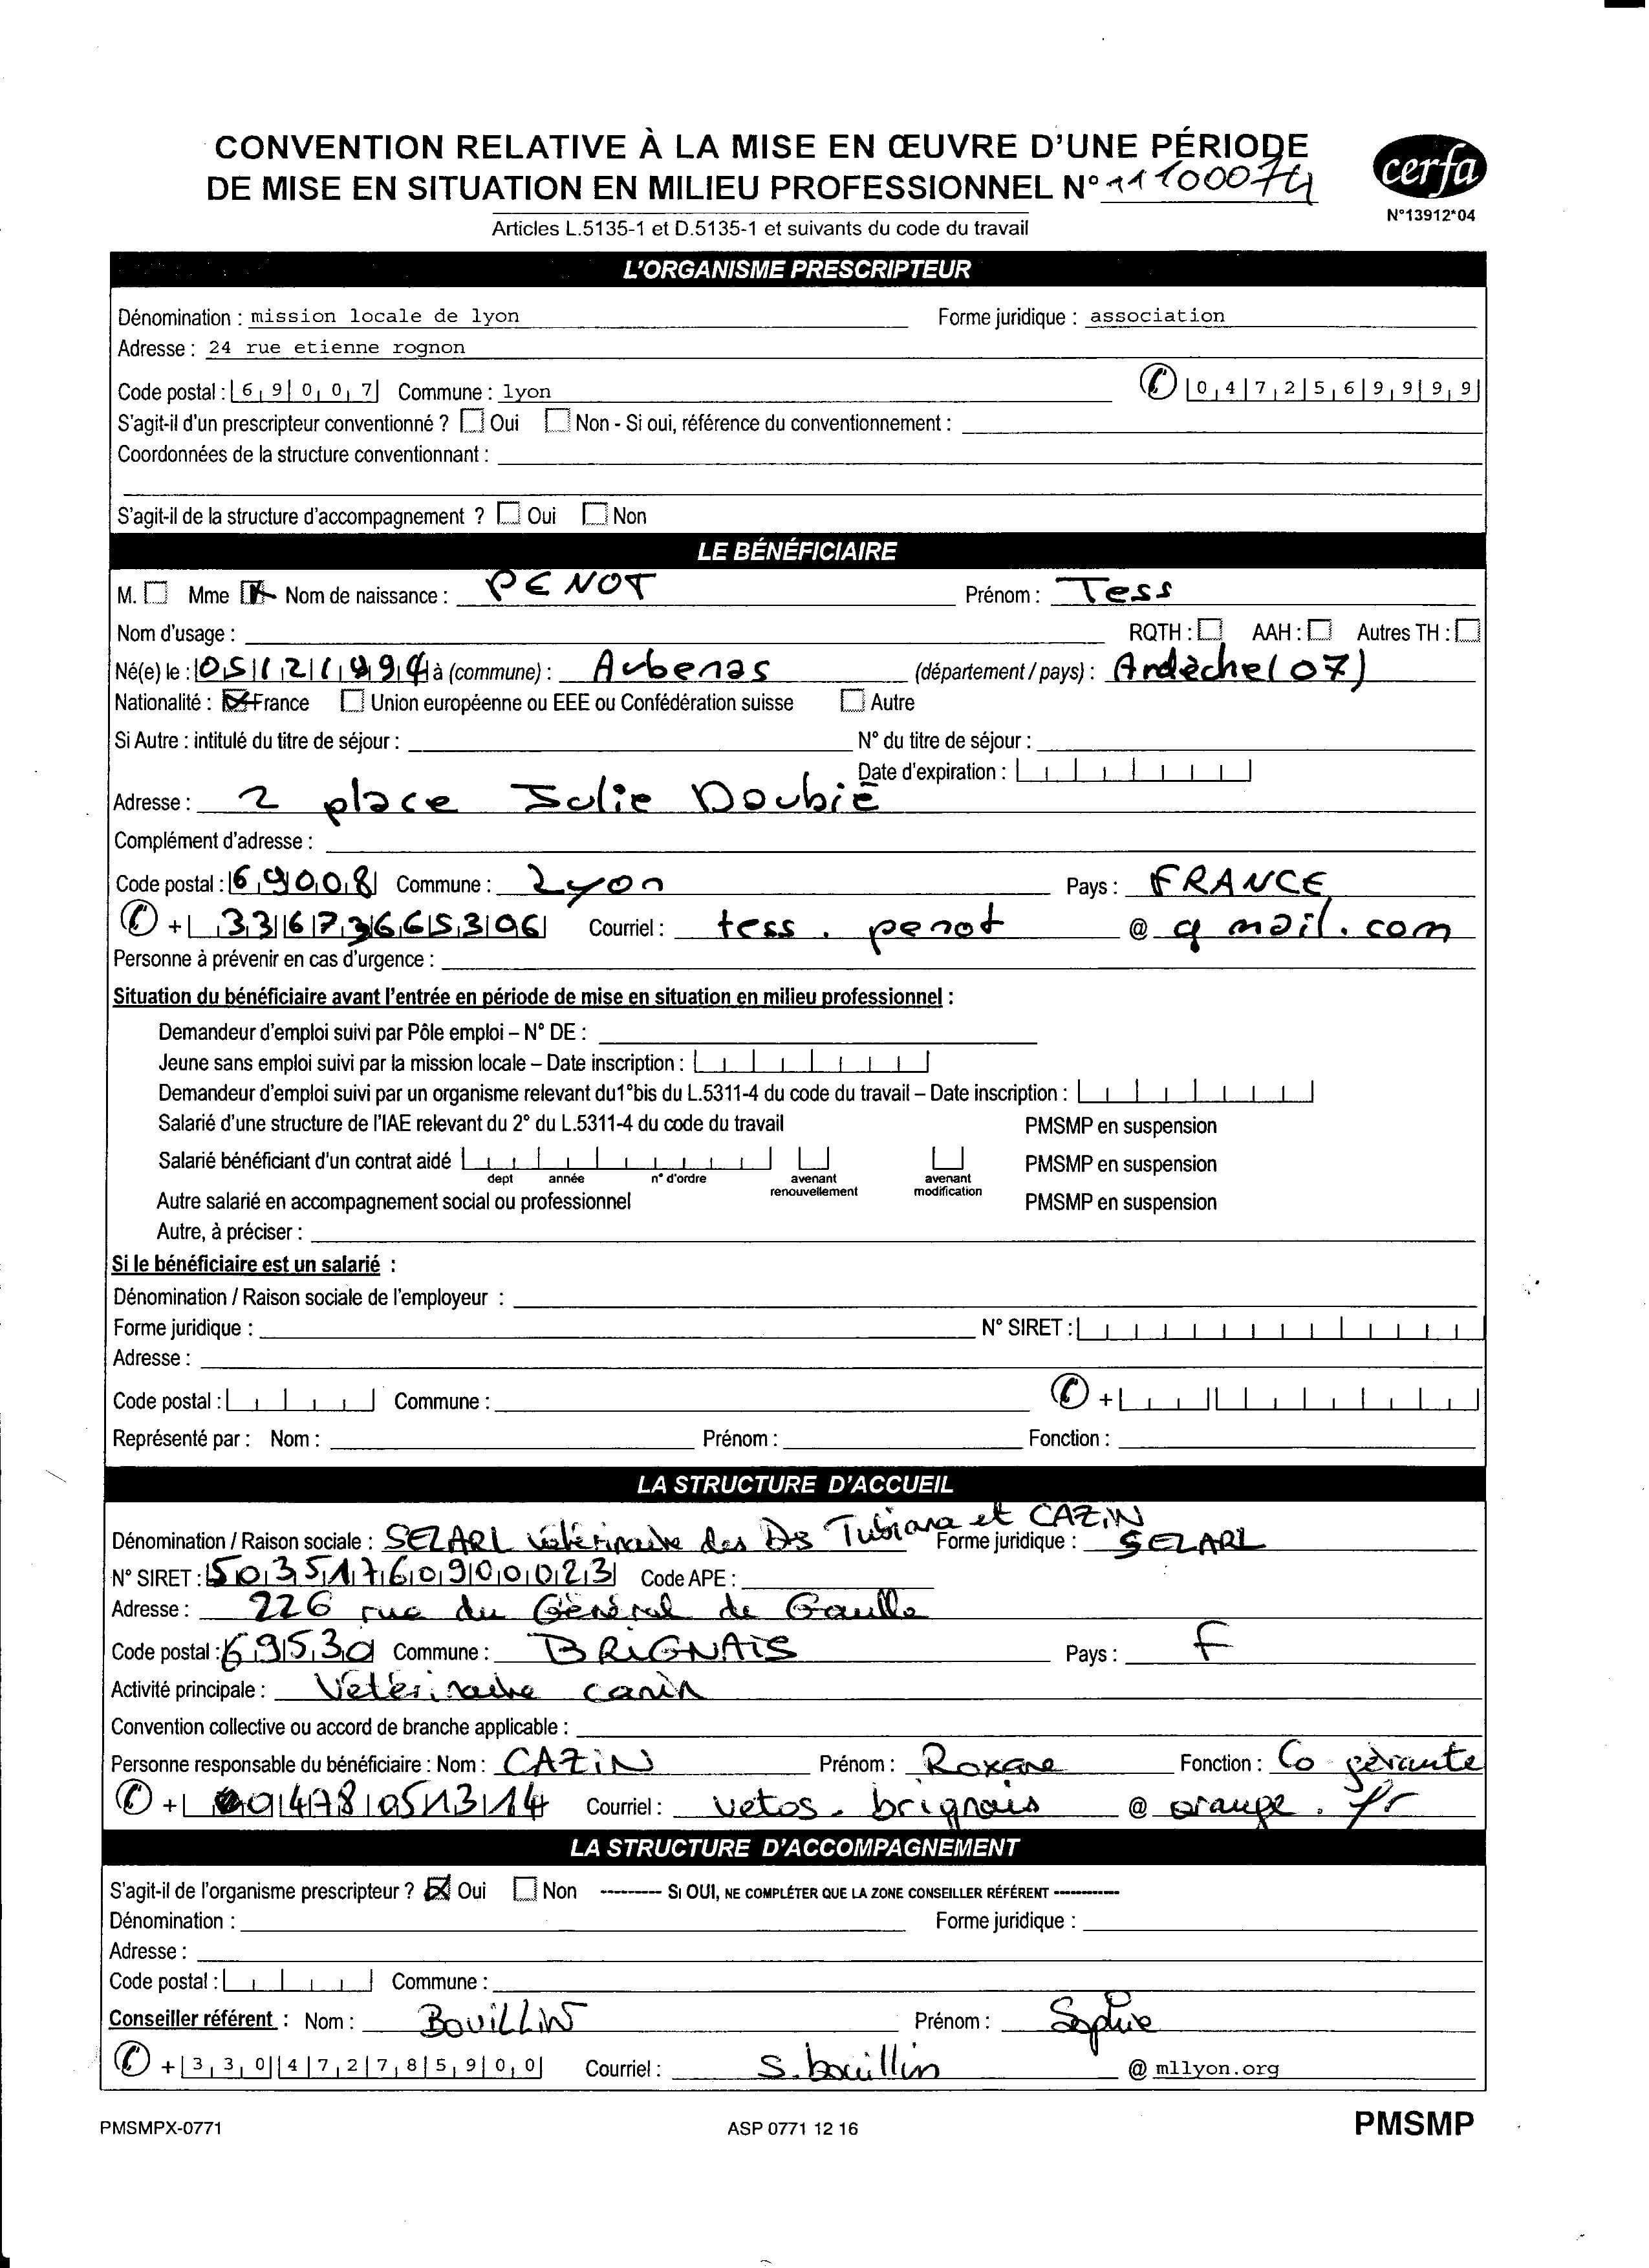 CONVENTION RELATIVE À LA MISE EN ŒUVRE D'UNE PÉRIODE
DE MISE EN SITUATION EN MILIEU PROFESSIONNEL N° 11100074
cerfa
N°13912*04
Articles L.5135-1 et D.5135-1 et suivants du code du travail
L'ORGANISME PRESCRIPTEUR
Dénomination : mission locale de lyon Forme juridique : association
Adresse : 24 rue etienne rognon
Code postal : 69007 Commune : lyon 0472569999
S'agit-il d'un prescripteur conventionné ? Oui Non - Si oui, référence du conventionnement :
Coordonnées de la structure conventionnant :
S'agit-il de la structure d'accompagnement ? Oui Non
LE BÉNÉFICIAIRE
M. Mme Nom de naissance : PENOT Prénom : Tess
Nom d'usage : RQTH : AAH : Autres TH :
Né(e) le : 05121994 à (commune) : Aubenas (département / pays) : Ardèche (07)
Nationalité : France Union européenne ou EEE ou Confédération suisse Autre
Si Autre : intitulé du titre de séjour : N° du titre de séjour :
Date d'expiration :
Adresse : 2 place Julie Doubié
Complément d'adresse :
Code postal : 69008 Commune : Lyon Pays : FRANCE
+ 33673665306 Courriel : tess.penot @ gmail.com
Personne à prévenir en cas d'urgence :
Situation du bénéficiaire avant l'entrée en période de mise en situation en milieu professionnel :
Demandeur d'emploi suivi par Pôle emploi – N° DE :
Jeune sans emploi suivi par la mission locale – Date inscription :
Demandeur d'emploi suivi par un organisme relevant du1°bis du L.5311-4 du code du travail – Date inscription :
Salarié d'une structure de l'IAE relevant du 2° du L.5311-4 du code du travail PMSMP en suspension
Salarié bénéficiant d'un contrat aidé PMSMP en suspension
dept année n° d'ordre avenant renouvellement avenant modification
Autre salarié en accompagnement social ou professionnel PMSMP en suspension
Autre, à préciser :
Si le bénéficiaire est un salarié :
Dénomination / Raison sociale de l'employeur :
Forme juridique : N° SIRET :
Adresse :
Code postal : Commune : +
Représenté par : Nom : Prénom : Fonction :
LA STRUCTURE D'ACCUEIL
Dénomination / Raison sociale : SELARL Vétérinaire des Drs Tubiana et CAZIN Forme juridique : SELARL
N° SIRET : 50351760900023 Code APE :
Adresse : 226 rue du Général de Gaulle
Code postal : 69530 Commune : BRIGNAIS Pays : F
Activité principale : Vétérinaire canin
Convention collective ou accord de branche applicable :
Personne responsable du bénéficiaire : Nom : CAZIN Prénom : Roxane Fonction : Co gérante
+ 0478051314 Courriel : vetos.brignais @ orange.fr
LA STRUCTURE D'ACCOMPAGNEMENT
S'agit-il de l'organisme prescripteur ? Oui Non --------- SI OUI, NE COMPLÉTER QUE LA ZONE CONSEILLER RÉFÉRENT -----------
Dénomination : Forme juridique :
Adresse :
Code postal : Commune :
Conseiller référent : Nom : BOUILLIN Prénom : Sophie
+ 330472785900 Courriel : s.bouillin @ mllyon.org
PMSMPX-0771 ASP 0771 12 16 PMSMP